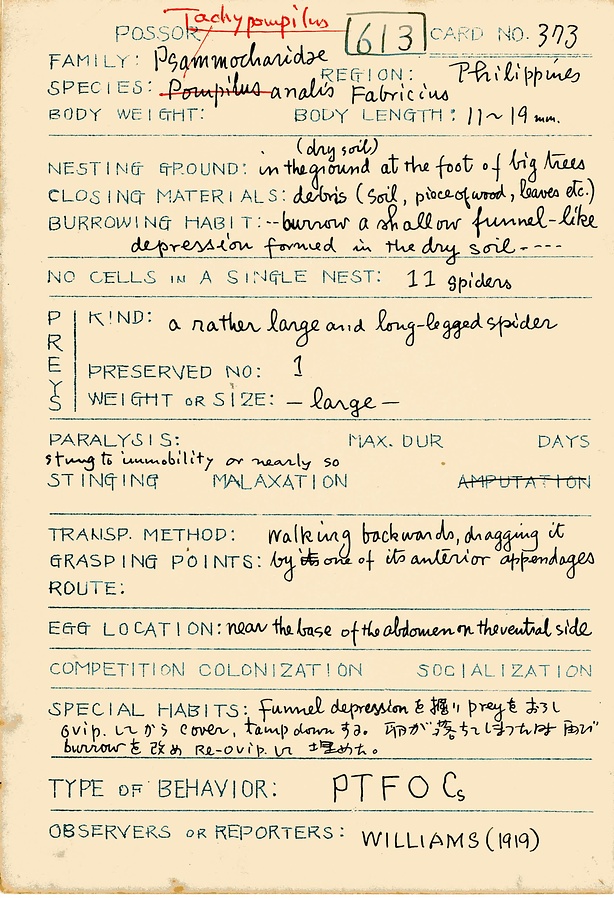 Tachypompilus
POSSOR 613 CARD NO. 373
FAMILY: Psammocharidae
REGION: Philippines
SPECIES: Pompilus analis Fabricius
BODY WEIGHT: BODY LENGTH: 11~19 mm.
(dry soil)
NESTING GROUND: in the ground at the foot of big trees
CLOSING MATERIALS: debris (soil, piece of wood, leaves etc.)
BURROWING HABIT: --burrow a shallow funnel-like
depression formed in the dry soil----
NO CELLS IN A SINGLE NEST: 11 spiders
PREYS
KIND: a rather large and long-legged spider
PRESERVED NO: 1
WEIGHT OR SIZE: — large —
PARALYSIS: MAX. DUR DAYS
stung to immobility or nearly so
STINGING MALAXATION AMPUTATION
TRANSP. METHOD: walking backwards, dragging it
GRASPING POINTS: by its one of its anterior appendages
ROUTE:
EGG LOCATION: near the base of the abdomen on the ventral side
COMPETITION COLONIZATION SOCIALIZATION
SPECIAL HABITS: Funnel depression を掘り prey をおろし
ovip. してから cover, tamp down する。 卵が落ちてしまった
burrow を改め re-ovip. して 埋めた。
TYPE OF BEHAVIOR: PTFOCs
OBSERVERS OR REPORTERS: WILLIAMS (1919)